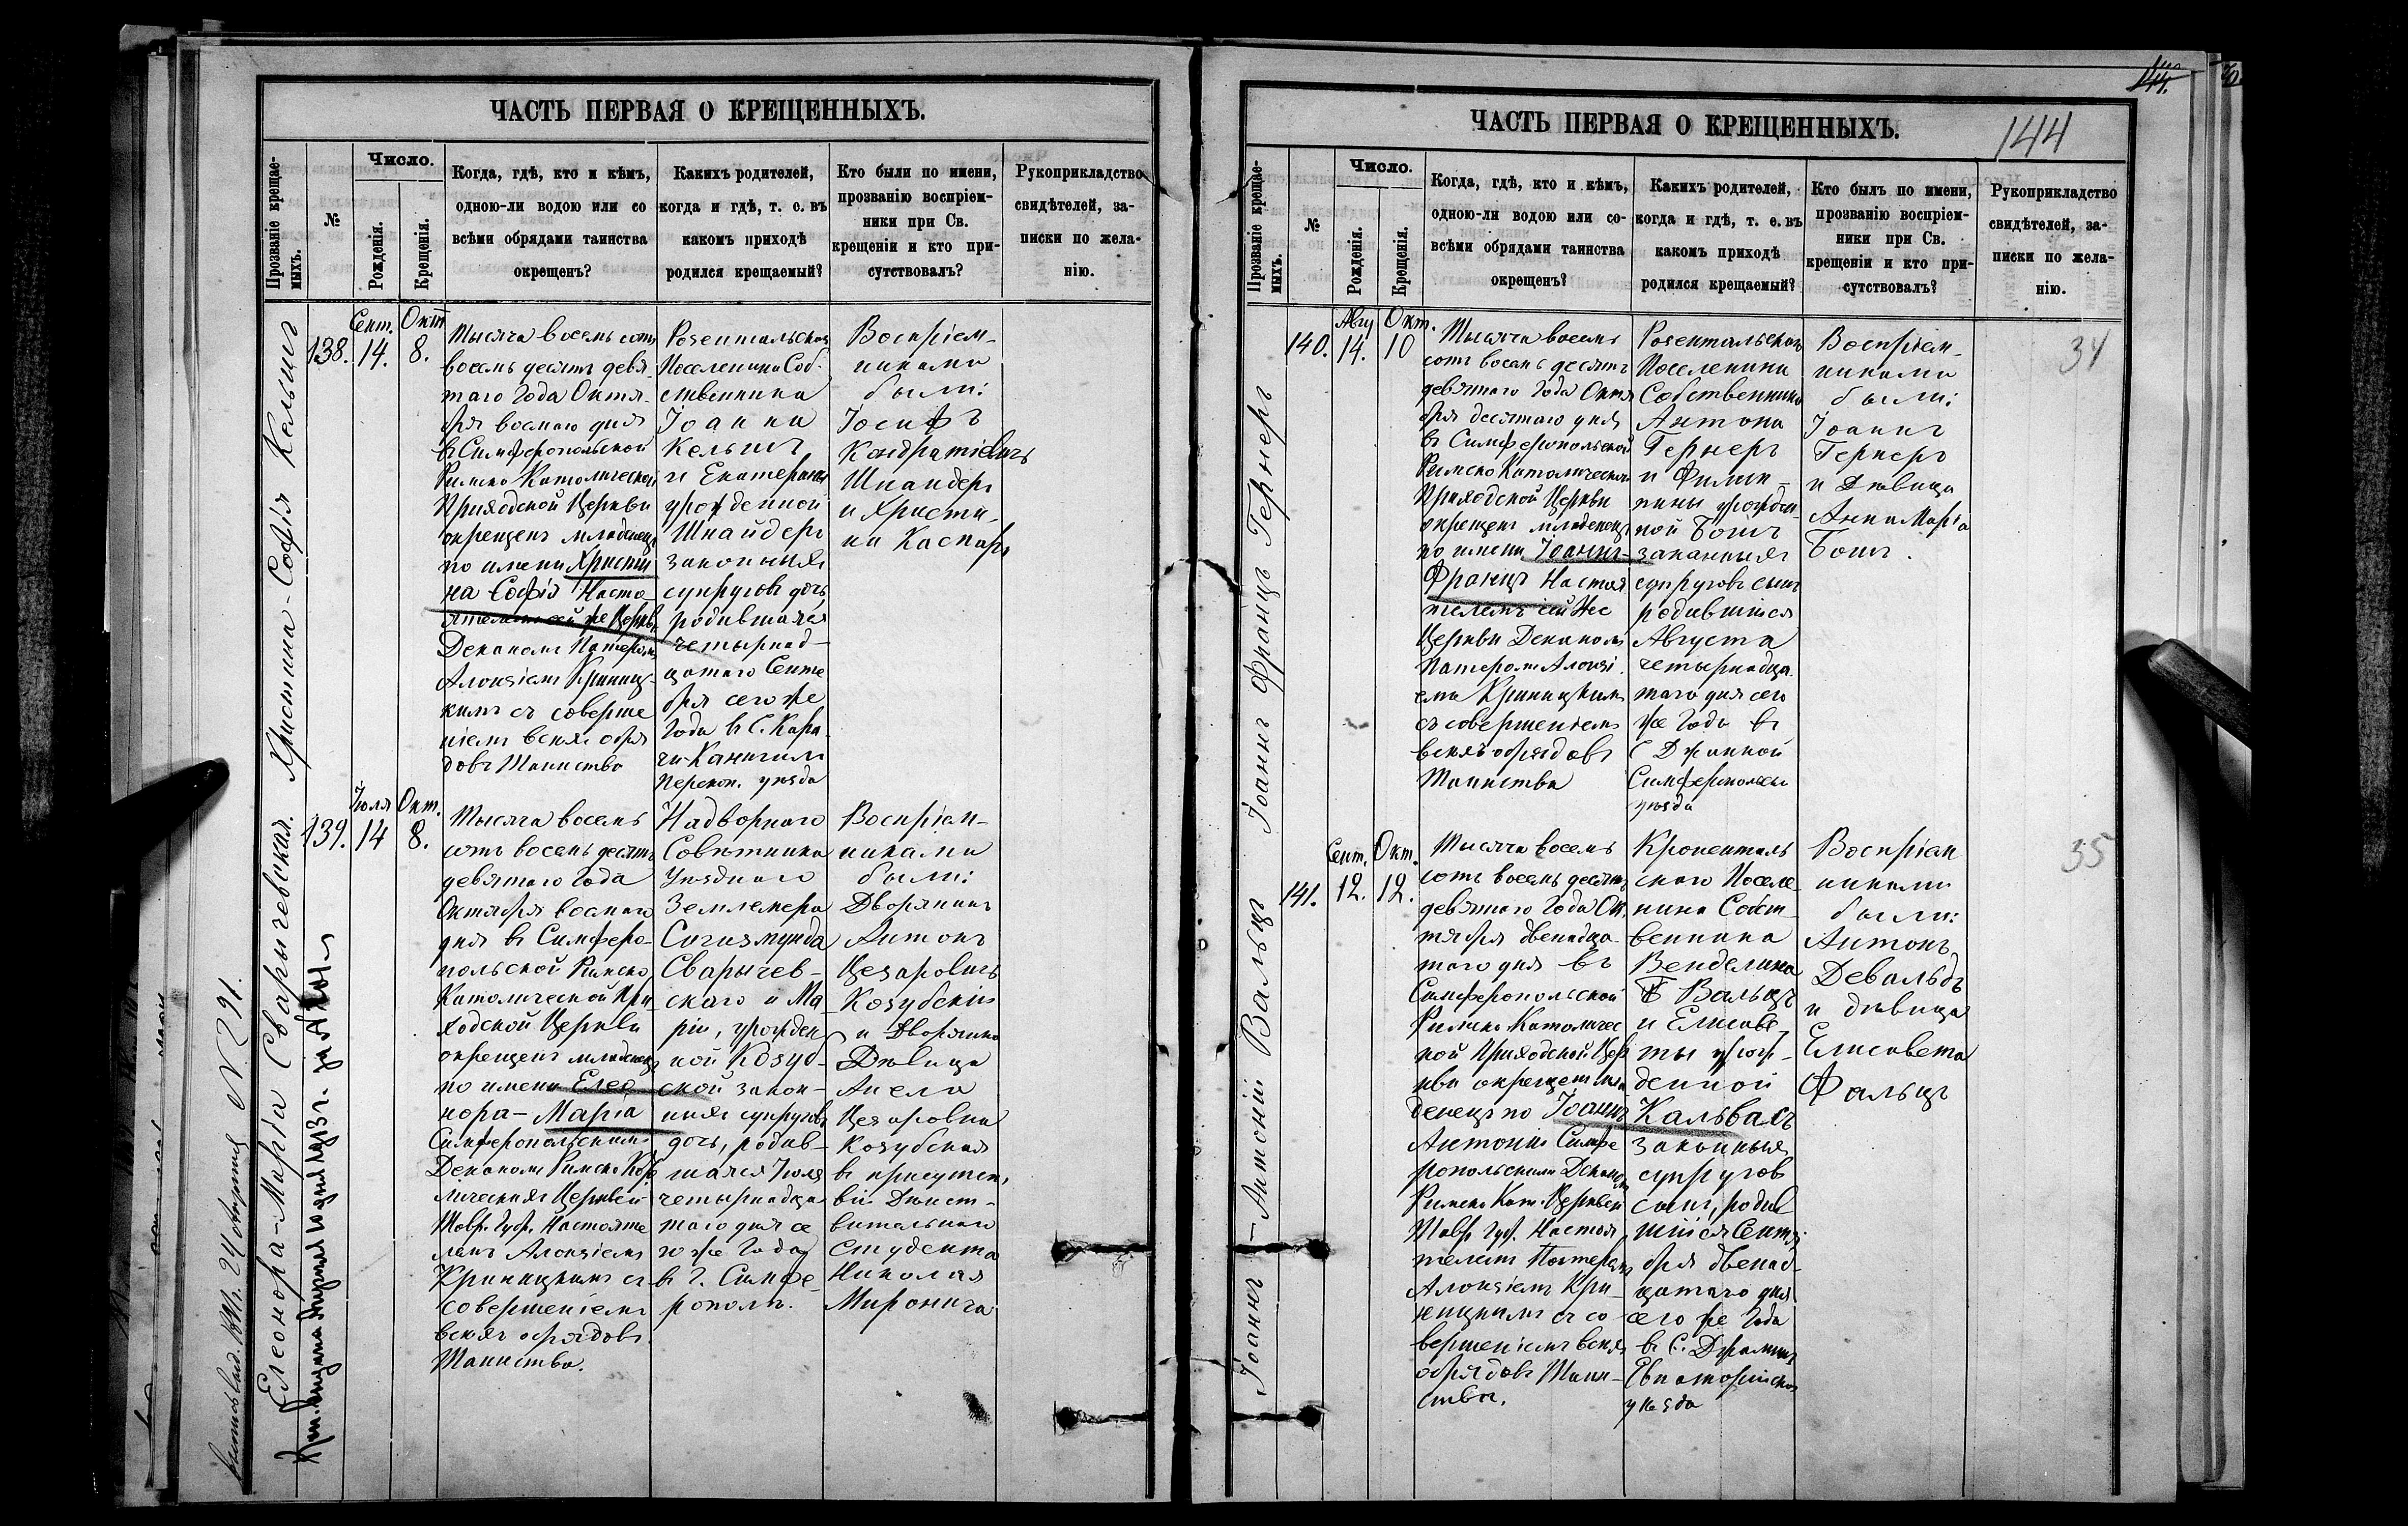 ЧАСТЬ ПЕРВАЯ О КРЕЩЕННЫХЪ.
Прозваніе крещае-
мыхъ.
№
Число.
Рожденія.
Крещенія.
Когда, гдѣ, кто и кѣмъ,
одною-ли водою или со
всѣми обрядами таинства
окрещенъ?
Какихъ родителей,
когда и гдѣ, т. е. въ
какомъ приходѣ
родился крещаемый?
Кто были по имени,
прозванію воспріем-
ники при Св.
крещеніи и кто при-
сутствовалъ?
Рукоприкладство
свидѣтелей, за-
писки по жела-
нію.
Христина-Софія
138.
Сент.
14.
Окт
8.
Тысяча восемь сотъ
восемь десятъ девя
таго года Октя-
бря восмаго дня
въ Симферопольской
Римско Католической
Приходской Церкви
окрещенъ младенецъ
по имени Христи
на Софія Насто-
ятелемъ сей же Церкви
Деканомъ Патеромъ
Алоизіемъ Криниц-
кимъ съ соверше
ніемъ всехъ обря
довъ Таинства
Розентальскаго
Поселенина Соб-
ственника
Іоанна
и Екатерины
урожденной
Шнайдеръ
законныхъ
супруговъ дочь
родившаяся
четырнад-
цатаго Сентя
бря сего же
года въ С. Кара
Перекоп. уезда
Воспріем-
никами
были:
Іосифъ
Кондратіевичъ
Шнайдеръ
и Христи-
на Каспаръ
Елеонора-Марія Сварычевская.
139.
Іюля
14
Окт.
8.
Тысяча восемь
сотъ восемь десятъ
девятаго года
Октября восмаго
дня въ Симферо-
польской Римско
Католической При
ходской Церкви
окрещенъ младенецъ
по имени Елео
нора-Марія
Симферопольскимъ
Деканомъ Римско Като
лическихъ Церквей
Тавр. Губ. Настояте
лемъ Алоизіемъ
Криницкимъ съ
совершеніемъ
всехъ обрядовъ
Таинства.
Надворнаго
Советника
Уезднаго
Землемера
Сигизмунда
Сварычев-
скаго и Ма
ріи, урожден
ной Козуб-
ской закон-
ныхъ супруговъ
дочь, родив-
шаяся Іюля
четырнадца
таго дня се
го же года
въ г. Симфе-
рополе.
Воспріем-
никами
были:
Дворянинъ
Антонъ
Цезаровичъ
Козубскій
и Дворянка
Девица
Анеля
Цезаровна
Козубская
въ присутст
віи Дейст-
вительнаго
Студента
Николая
Миронича
24 Апреля N 291.
ЧАСТЬ ПЕРВАЯ О КРЕЩЕННЫХЪ.
144
Прозваніе крещае-
мыхъ.
№
Число.
Рожденія.
Крещенія.
Когда, гдѣ, кто и кѣмъ,
одною-ли водою или со-
всѣми обрядами таинства
окрещенъ?
Какихъ родителей,
когда и гдѣ, т. е. въ
какомъ приходѣ
родился крещаемый?
Кто былъ по имени,
прозванію воспріем-
ники при Св.
крещеніи и кто при-
сутствовалъ?
Рукоприкладство
свидѣтелей, за-
писки по жела-
нію.
Іоаннъ Францъ Гернеръ
140.
Авгу
14.
Окт.
10
Тысяча восемь
сотъ восемь десятъ
девятаго года Октя
бря десятаго дня
въ Симферопольской
Римско Католической
Приходской Церкви
окрещенъ младенецъ
по имени Іоаннъ-
Францъ Настоя
телемъ сей же
Церкви Деканомъ
Патеромъ Алоизі
емъ Криницкимъ
съ совершеніемъ
всехъ обрядовъ
Таинства
Розентальскаго
Поселенина
Собственника
Антона
Гернеръ
и Филип-
пины урожден
ной Бошъ
законныхъ
супруговъ сынъ
родившійся
Августа
четырнадца
таго дня сего
же года въ
Симферопольск
уезда
Воспріем-
никами
были:
Іоаннъ
Гернеръ
и Девица
Анна Марія
Бошъ.
34
Іоаннъ - Антоній Вальцъ
141.
Сент.
12.
Окт.
12.
Тысяча восемь
сотъ восемь десятъ
девятаго года Ок
тября двенадца
таго дня въ
Симферопольской
Римско Католичес
кой Приходской Цер
кви окрещенъ мла
денецъ по Іоаннъ
Антоній Симфе
ропольскимъ Деканомъ
Римско Кат. Церквей
Тавр. Губ. Настоя
телемъ Патеромъ
Алоизіемъ Кри-
ницкимъ съ со
вершеніемъ всехъ
обрядовъ Таин-
ства.
Кроненталь
скаго Поселе
нина Собст-
венника
Венделина
Вальцъ
и Елисаве
ты урож-
денной
Кальвахъ
законныхъ
супругов
сынъ, родив
шійся Сентя
бря двенад-
цатаго дня
сего же года
Евпаторійскаго
уезда
Воспріем
никами
были:
Антонъ
Девальдъ
и девица
Елисавета
Фальцъ
35